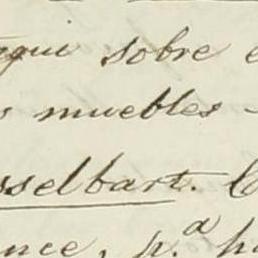 aqui sobre e
s muebles -
sselbart. C
nce, p.ª pa